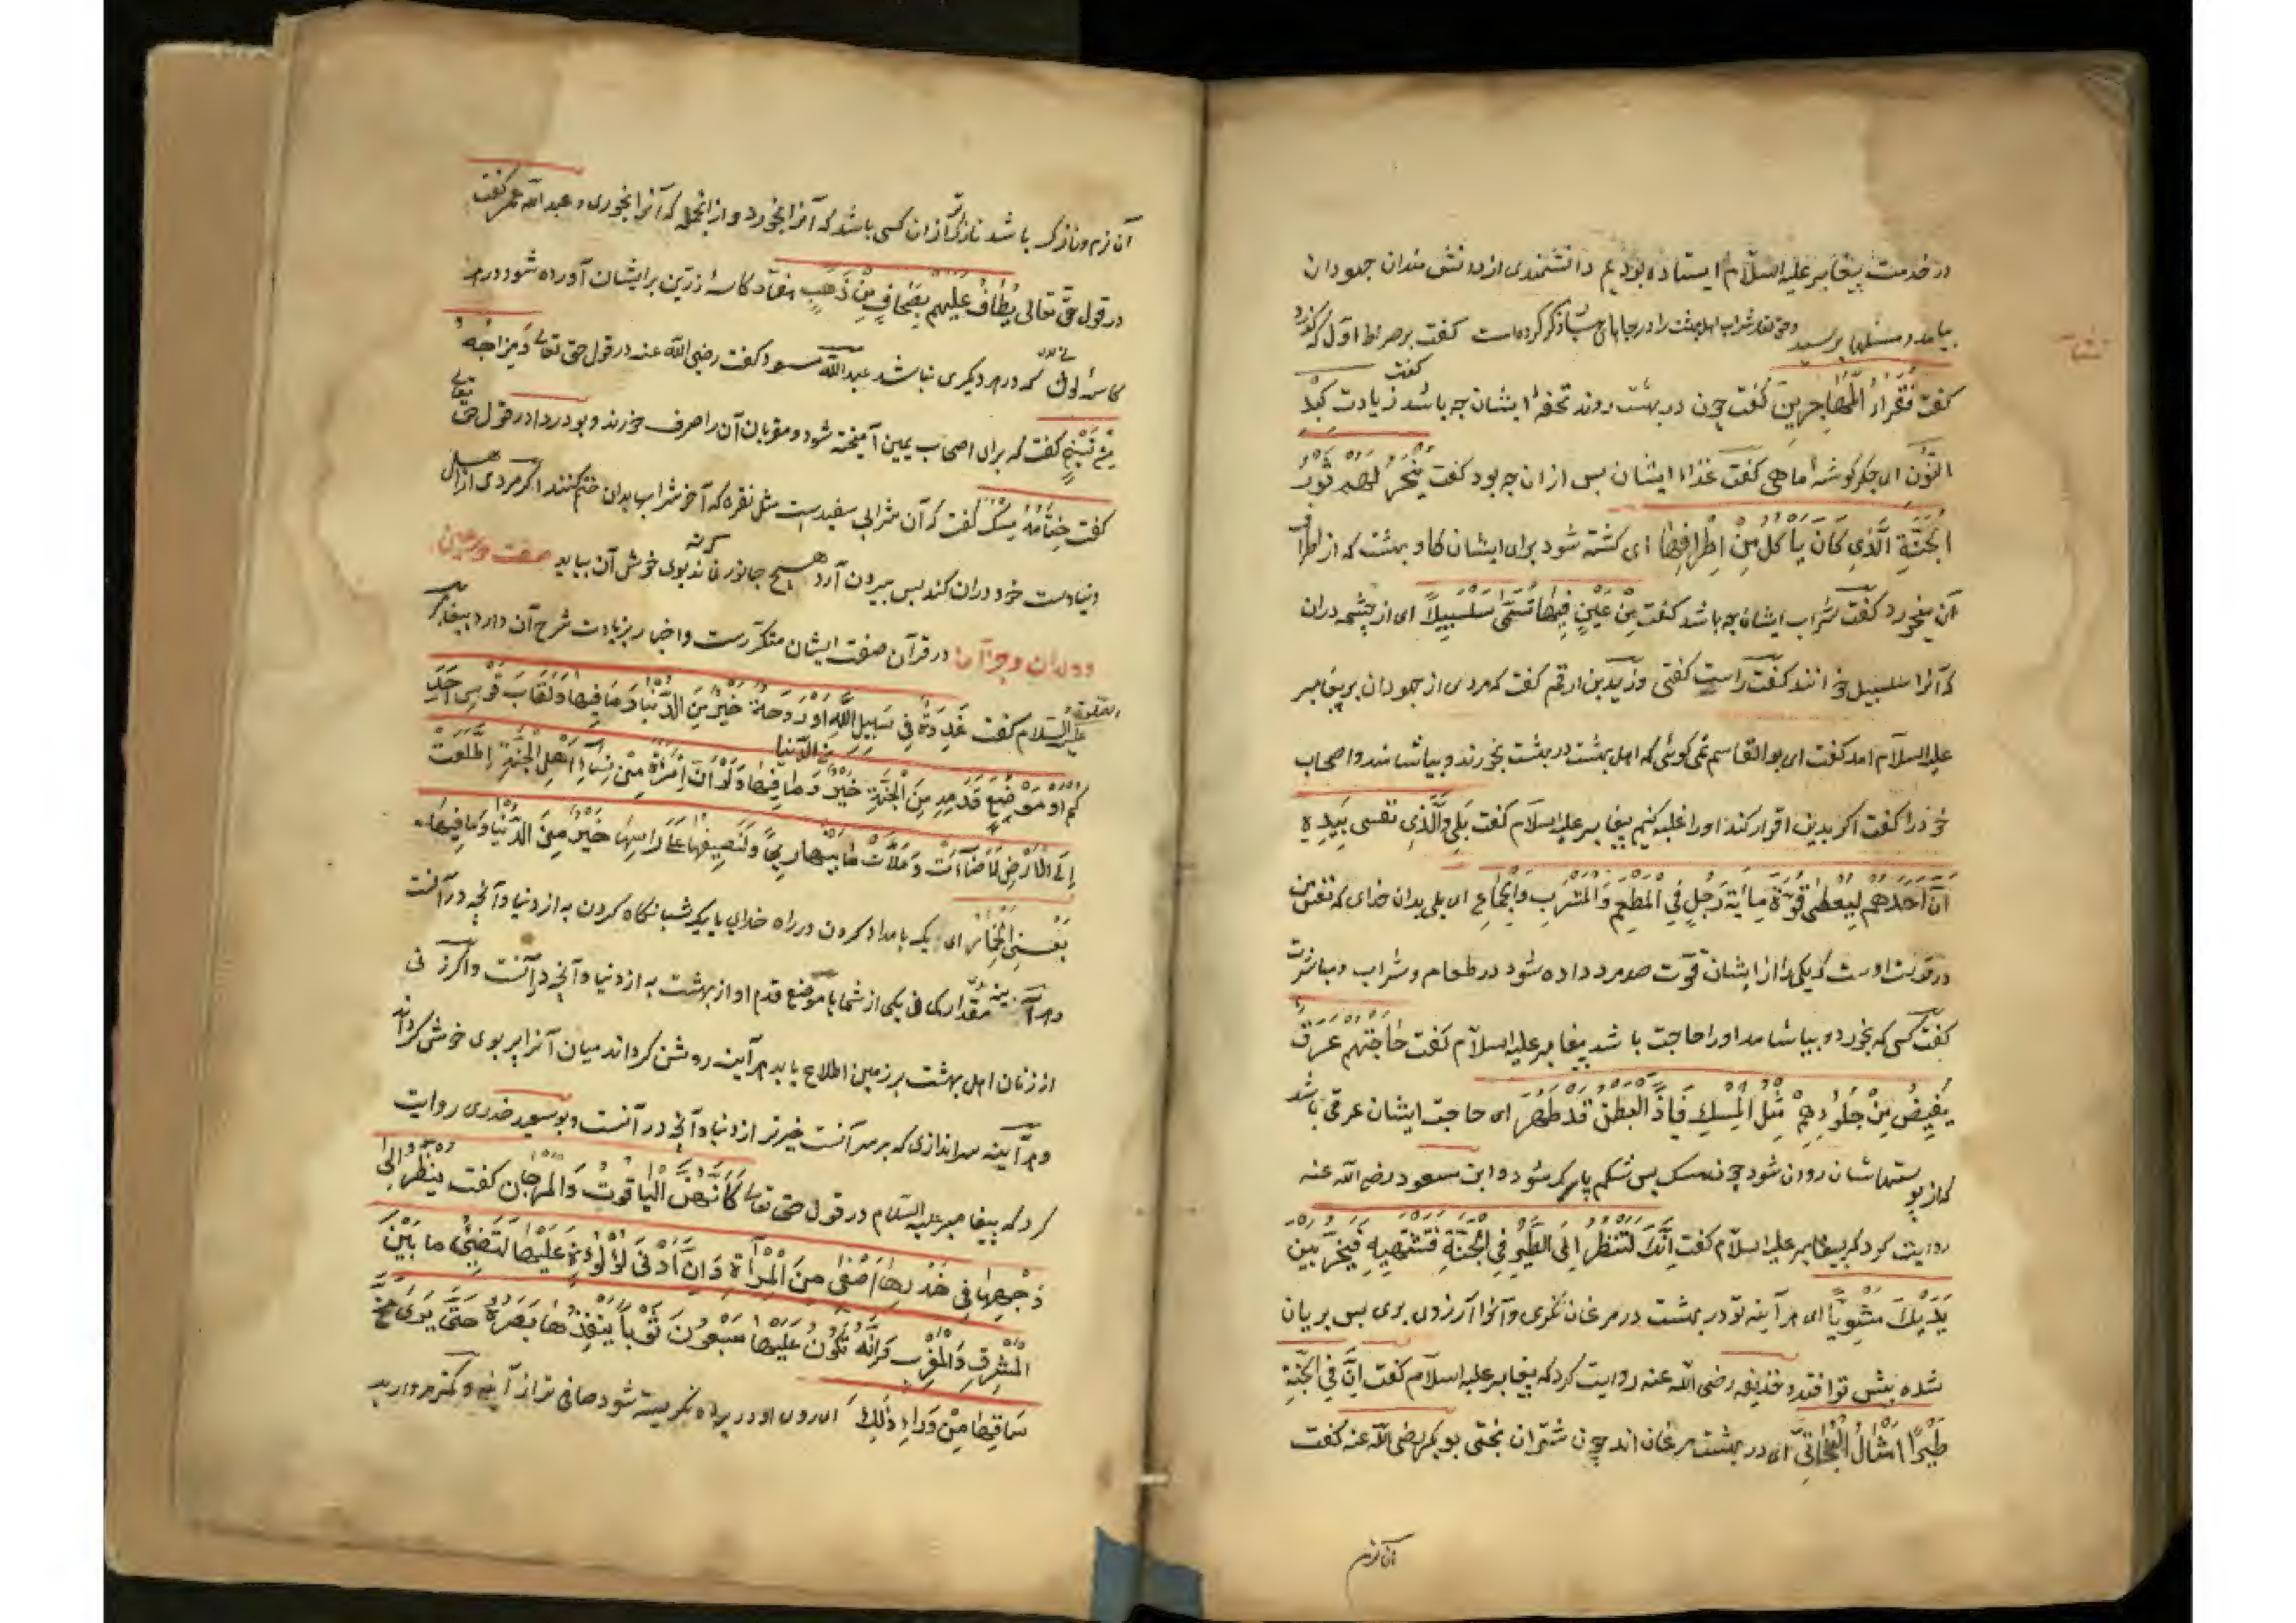 در خدمت پیغامبر علیه السلام ایستاده بودیم دانشمندی از دانشمندان جهودان
بیامد و مسئلها پرسید و حق تعالی شراب اهل بهشت را در جاهای ذکر کرده است گفت بر صراط اول که گذرد
گفت فُقَرَاءُ الْمُهَاجِرِینَ گفت چون در بهشت روند تحفهٔ ایشان چه باشد گفت زیادت کَبِدُ
النُّونِ ای جگر گوشهٔ ماهی گفت غذاء ایشان پس از ان چه بود گفت یُنْحَرُ لَهُمْ ثَوْرُ
الْجَنَّةِ الَّذِی کَانَ یَأْکُلُ مِنْ اَطْرَافِهَا ای کشته شود برای ایشان گاو بهشت که از اطراف
آن میخورد گفت شراب ایشان چه باشد گفت مِنْ عَیْنٍ فِیهَا تُسَمَّی سَلْسَبِیلًا ای از چشمه دران
که آنرا سلسبیل خوانند گفت راست گفتی و زید بن ارقم گفت که مردی از جهودان بر پیغامبر
علیه السلام امد گفت ای بو القاسم نمی گوئی که اهل بهشت در بهشت بخورند و بیاشامند و اصحاب
خود را گفت اگر بدین اقرار کند او را غلبه کنیم پیغامبر علیه السلام گفت بَلَی وَالَّذِی نفسی بِیَدِهِ
اَنَّ اَحَدَهُمْ لَیُعْطَی قُوَّةَ مِأَیَةِ رَجُلٍ فِی الْمَطْعَمِ وَالْمَشْرَبِ وَالْجِمَاعِ ای بلی بدان خدای که نفس من
در قدرت اوست که یکی را از ایشان قوّت صد مرد داده شود در طعام و شراب و مباشرت
گفت کسی که بخورد و بیاشامد او را حاجت باشد پیغامبر علیه السلام گفت حَاجَتُهُمْ عَرَقٌ
یَفِیضُ مِنْ جُلُودِهِمْ مِثْلُ الْمِسْکِ فَاِذَا الْبَطْنُ قَدْ ضَمُرَ ای حاجت ایشان عرقی باشد
که از پوستهاشان روان شود چون مسک پس شکم پاک شود و ابن مسعود رضی الله عنه
روایت کرد که پیغامبر علیه السلام گفت اِنَّکَ لَتَنْظُرُ اِلَی الطَّیْرِ فِی الْجَنَّةِ فَتَشْتَهِیهِ فَیَخِرُّ بَیْنَ
یَدَیْکَ مَشْوِیًّا ای هر آینه تو در بهشت در مرغان نگری و آنرا آرزوی بری پس بریان
شده پیش تو افتد و حذیفه رضی الله عنه روایت کرد که پیغامبر علیه السلام گفت اِنَّ فِی الْجَنَّةِ
طَیْرًا اَمْثَالُ الْبَخَاتِیِّ ای در بهشت مرغان اند چون شتران بختی بو بکر رضی الله عنه گفت
آن نرم
آن نرم و نازک باشد نازکتر ازان کسی باشد که آنرا بخورد و از انجمله که آنرا بخوری و عبد الله عمر گفت
در قول حق تعالی یُطَافُ عَلَیْهِمْ بِصِحَافٍ مِنْ ذَهَبٍ هفتاد کاسهٔ زرین بر ایشان آورده شود در هر
کاسهٔ لونی که در دیگری نباشد عبد الله مسعود گفت رضی الله عنه در قول حق تعالی وَمِزَاجُهُ
مِنْ تَسْنِیمٍ گفت که برای اصحاب یمین آمیخته شود و مقربان آن را صرف خورند و بو دردا در قول حق تعالی
گفت خِتَامُهُ مِسْکٌ گفت که آن شرابی سفیدست مثل نقره که آخر شراب بدان ختم کنند اگر مردی از اهل
دنیا دست خود دران کند پس بیرون آرد هیچ جانور نماند که نه بوی خوش آن بیابد صفت حور عین
و ولدان وجز آن در قرآن صفت ایشان متکررست و اخبار بزیادت شرح آن دارد پیغامبر
علیه الصلوة والسلام گفت غَدْوَةٌ فِی سَبِیلِ اللهِ اَوْ رَوْحَةٌ خَیْرٌ مِنَ الدُّنْیَا وَمَا فِیهَا وَلَقَابَ قَوْسِ اَحَدِ
کُمْ اَوْ مَوْضِعُ قَدَمِهِ مِنَ الْجَنَّةِ خَیْرٌ من الدنیا وَمَا فِیهَا وَلَوْ اَنَّ اِمْرَأَةً مِنْ نِسَاءِ اَهْلِ الْجَنَّةِ اِطَّلَعَتْ
اِلَی الْاَرْضِ لَاَضَاءَتْ وَمَلَأَتْ مَا بَیْنَهَا رِیحًا وَلَنَصِیفُهَا عَلَی رَاْسِهَا خَیْرٌ مِنَ الدُّنْیَا وَمَا فِیهَا
یَعْنِی الْخِمَارَ ای یک بامداد کردن در راه خدای یا یک شبانگاه کردن به از دنیا و آنچه در آنست
و هر آینه مقدار کمانی یکی از شما یا موضع قدم او از بهشت به از دنیا و آنچه در آنست و اگر زنی
از زنان اهل بهشت بر زمین اطلاع یابد هر آینه روشن گرداند میان آنرا پر بوی خوش گرداند
و هر آینه سراندازی که بر سر آنست خیرتر از دنیا و آنچه در آنست و بو سعید خدری روایت
کرد که پیغامبر علیه السلام در قول حق تعالی کَأَنَّهُنَّ الْیَاقُوتُ وَالْمَرْجَانُ گفت یَنْظُرُ اِلَی
وَجْهِهَا فِی خِدْرِهَا اَصْفَی مِنَ الْمِرْآةِ وَاِنَّ اَدْنَی لُؤْلُؤَةٍ عَلَیْهَا لَتُضِیُٔ مَا بَیْنَ
الْمَشْرِقِ وَالْمَغْرِبِ وَاِنَّهُ تَکُونُ عَلَیْهَا سَبْعُونَ ثَوْبًا یَنْفُذُهَا بَصَرُهُ حَتَّی یَرَی مُخَّ
سَاقِهَا مِنْ وَرَاءِ ذٰلِکَ ای روی او در پرده نگریسته شود صافی تر از آینه و کمتر مروارید